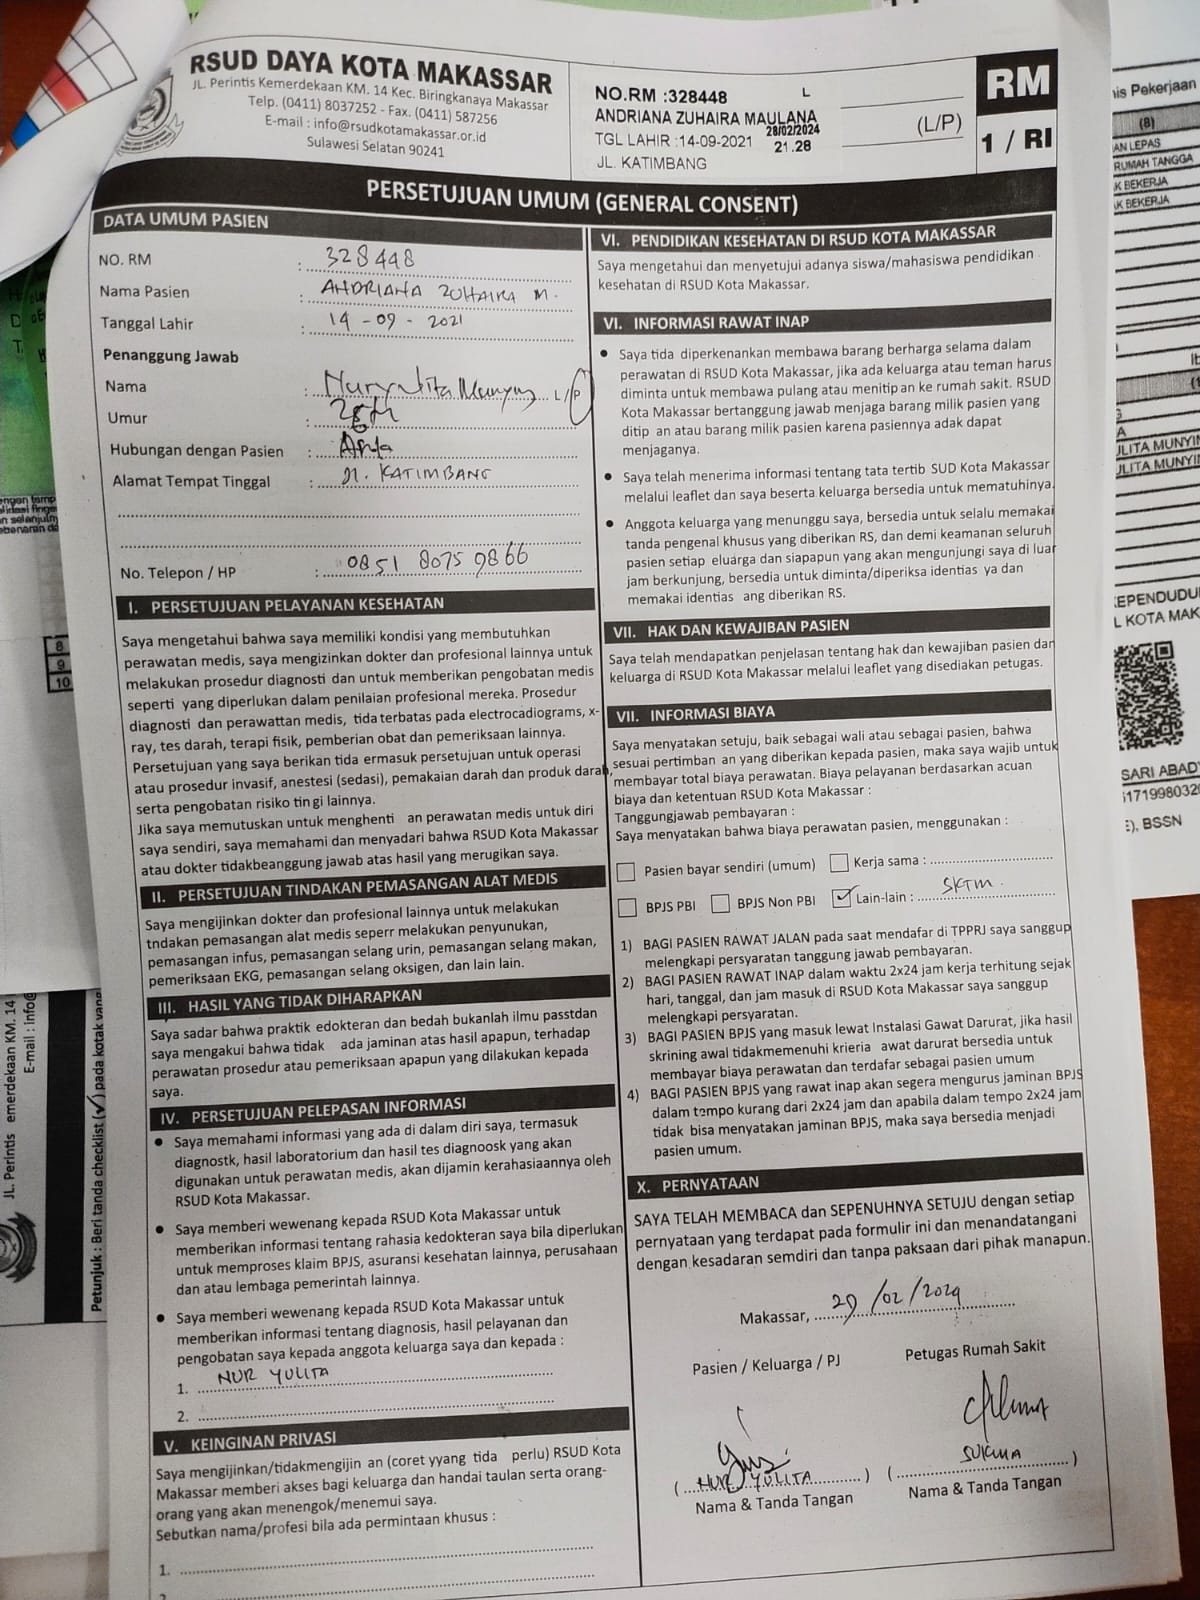 RSUD DAYA KOTA MAKASSAR
JL. Perintis Kemerdekaan KM. 14 Kec. Biringkanaya Makassar
Telp. (0411) 8037252 - Fax. (0411) 587256
E-mail : info@rsudkotamakassar.or.id
Sulawesi Selatan 90241
NO.RM :328448 L
ANDRIANA ZUHAIRA MAULANA
28/02/2024
TGL LAHIR :14-09-2021 21.28
JL. KATIMBANG
(L/P)
RM
1 / RI
PERSETUJUAN UMUM (GENERAL CONSENT)
DATA UMUM PASIEN
NO. RM : 328448
Nama Pasien : ANDRIANA ZUHAIRA M.
Tanggal Lahir : 14 - 09 - 2021
Penanggung Jawab
Nama : L/P
Umur :
Hubungan dengan Pasien :
Alamat Tempat Tinggal : Jl. KATIMBANG
No. Telepon / HP : 0851 8075 9866
I. PERSETUJUAN PELAYANAN KESEHATAN
Saya mengetahui bahwa saya memiliki kondisi yang membutuhkan
perawatan medis, saya mengizinkan dokter dan profesional lainnya untuk
melakukan prosedur diagnosti dan untuk memberikan pengobatan medis
seperti yang diperlukan dalam penilaian profesional mereka. Prosedur
diagnosti dan perawattan medis, tida terbatas pada electrocadiograms, x-
ray, tes darah, terapi fisik, pemberian obat dan pemeriksaan lainnya.
Persetujuan yang saya berikan tida ermasuk persetujuan untuk operasi
atau prosedur invasif, anestesi (sedasi), pemakaian darah dan produk darah,
serta pengobatan risiko tin gi lainnya.
Jika saya memutuskan untuk menghenti an perawatan medis untuk diri
saya sendiri, saya memahami dan menyadari bahwa RSUD Kota Makassar
atau dokter tidakbeanggung jawab atas hasil yang merugikan saya.
II. PERSETUJUAN TINDAKAN PEMASANGAN ALAT MEDIS
Saya mengijinkan dokter dan profesional lainnya untuk melakukan
tndakan pemasangan alat medis seperr melakukan penyunukan,
pemasangan infus, pemasangan selang urin, pemasangan selang makan,
pemeriksaan EKG, pemasangan selang oksigen, dan lain lain.
III. HASIL YANG TIDAK DIHARAPKAN
Saya sadar bahwa praktik edokteran dan bedah bukanlah ilmu passtdan
saya mengakui bahwa tidak ada jaminan atas hasil apapun, terhadap
perawatan prosedur atau pemeriksaan apapun yang dilakukan kepada
saya.
IV. PERSETUJUAN PELEPASAN INFORMASI
• Saya memahami informasi yang ada di dalam diri saya, termasuk
diagnostk, hasil laboratorium dan hasil tes diagnoosk yang akan
digunakan untuk perawatan medis, akan dijamin kerahasiaannya oleh
RSUD Kota Makassar.
• Saya memberi wewenang kepada RSUD Kota Makassar untuk
memberikan informasi tentang rahasia kedokteran saya bila diperlukan
untuk memproses klaim BPJS, asuransi kesehatan lainnya, perusahaan
dan atau lembaga pemerintah lainnya.
• Saya memberi wewenang kepada RSUD Kota Makassar untuk
memberikan informasi tentang diagnosis, hasil pelayanan dan
pengobatan saya kepada anggota keluarga saya dan kepada :
1. NUR YULITA
2.
V. KEINGINAN PRIVASI
Saya mengijinkan/tidakmengijin an (coret yyang tida perlu) RSUD Kota
Makassar memberi akses bagi keluarga dan handai taulan serta orang-
orang yang akan menengok/menemui saya.
Sebutkan nama/profesi bila ada permintaan khusus :
1.
VI. PENDIDIKAN KESEHATAN DI RSUD KOTA MAKASSAR
Saya mengetahui dan menyetujui adanya siswa/mahasiswa pendidikan
kesehatan di RSUD Kota Makassar.
VI. INFORMASI RAWAT INAP
• Saya tida diperkenankan membawa barang berharga selama dalam
perawatan di RSUD Kota Makassar, jika ada keluarga atau teman harus
diminta untuk membawa pulang atau menitip an ke rumah sakit. RSUD
Kota Makassar bertanggung jawab menjaga barang milik pasien yang
ditip an atau barang milik pasien karena pasiennya adak dapat
menjaganya.
• Saya telah menerima informasi tentang tata tertib SUD Kota Makassar
melalui leaflet dan saya beserta keluarga bersedia untuk mematuhinya.
• Anggota keluarga yang menunggu saya, bersedia untuk selalu memakai
tanda pengenal khusus yang diberikan RS, dan demi keamanan seluruh
pasien setiap eluarga dan siapapun yang akan mengunjungi saya di luar
jam berkunjung, bersedia untuk diminta/diperiksa identias ya dan
memakai identias ang diberikan RS.
VII. HAK DAN KEWAJIBAN PASIEN
Saya telah mendapatkan penjelasan tentang hak dan kewajiban pasien dan
keluarga di RSUD Kota Makassar melalui leaflet yang disediakan petugas.
VII. INFORMASI BIAYA
Saya menyatakan setuju, baik sebagai wali atau sebagai pasien, bahwa
sesuai pertimban an yang diberikan kepada pasien, maka saya wajib untuk
membayar total biaya perawatan. Biaya pelayanan berdasarkan acuan
biaya dan ketentuan RSUD Kota Makassar :
Tanggungjawab pembayaran :
Saya menyatakan bahwa biaya perawatan pasien, menggunakan :
Pasien bayar sendiri (umum) Kerja sama :
BPJS PBI BPJS Non PBI Lain-lain : SKTM.
1) BAGI PASIEN RAWAT JALAN pada saat mendafar di TPPRJ saya sanggup
melengkapi persyaratan tanggung jawab pembayaran.
2) BAGI PASIEN RAWAT INAP dalam waktu 2x24 jam kerja terhitung sejak
hari, tanggal, dan jam masuk di RSUD Kota Makassar saya sanggup
melengkapi persyaratan.
3) BAGI PASIEN BPJS yang masuk lewat Instalasi Gawat Darurat, jika hasil
skrining awal tidakmemenuhi krieria awat darurat bersedia untuk
membayar biaya perawatan dan terdafar sebagai pasien umum
4) BAGI PASIEN BPJS yang rawat inap akan segera mengurus jaminan BPJS
dalam tempo kurang dari 2x24 jam dan apabila dalam tempo 2x24 jam
tidak bisa menyatakan jaminan BPJS, maka saya bersedia menjadi
pasien umum.
X. PERNYATAAN
SAYA TELAH MEMBACA dan SEPENUHNYA SETUJU dengan setiap
pernyataan yang terdapat pada formulir ini dan menandatangani
dengan kesadaran semdiri dan tanpa paksaan dari pihak manapun.
Makassar, 29/02/2024
Pasien / Keluarga / PJ Petugas Rumah Sakit
(NUR YULITA) (SUKMA)
Nama & Tanda Tangan Nama & Tanda Tangan
nis Pekerjaan
(8)
AN LEPAS
RUMAH TANGGA
K BEKERJA
K BEKERJA
8
9
10
JL. Perintis emerdekaan KM. 14
E-mail : info@
Petunjuk : Beri tanda checklist (✓) pada kotak yang